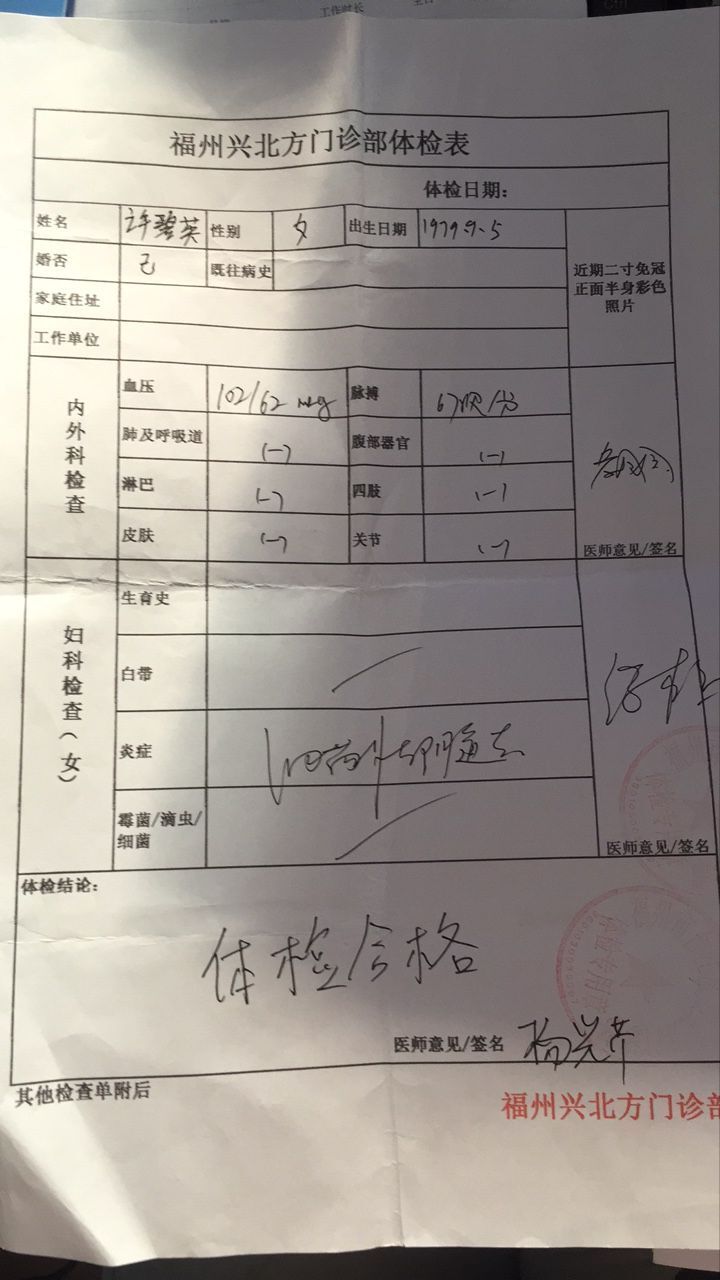 工作时长
福州兴北方门诊部体检表
体检日期:
姓名 许碧英 性别 女 出生日期 1979.9.5
婚否 已 既往病史
近期二寸免冠
正面半身彩色
照片
家庭住址
工作单位
内外科检查
血压 102/62 mmHg 脉搏 67次/分
肺及呼吸道 (-) 腹部器官 (-)
淋巴 (-) 四肢 (-)
皮肤 (-) 关节 (-)
医师意见/签名
妇科检查(女)
生育史
白带
炎症
霉菌/滴虫/
细菌
医师意见/签名
体检结论:
体检合格
医师意见/签名 杨兴芹
其他检查单附后
福州兴北方门诊部